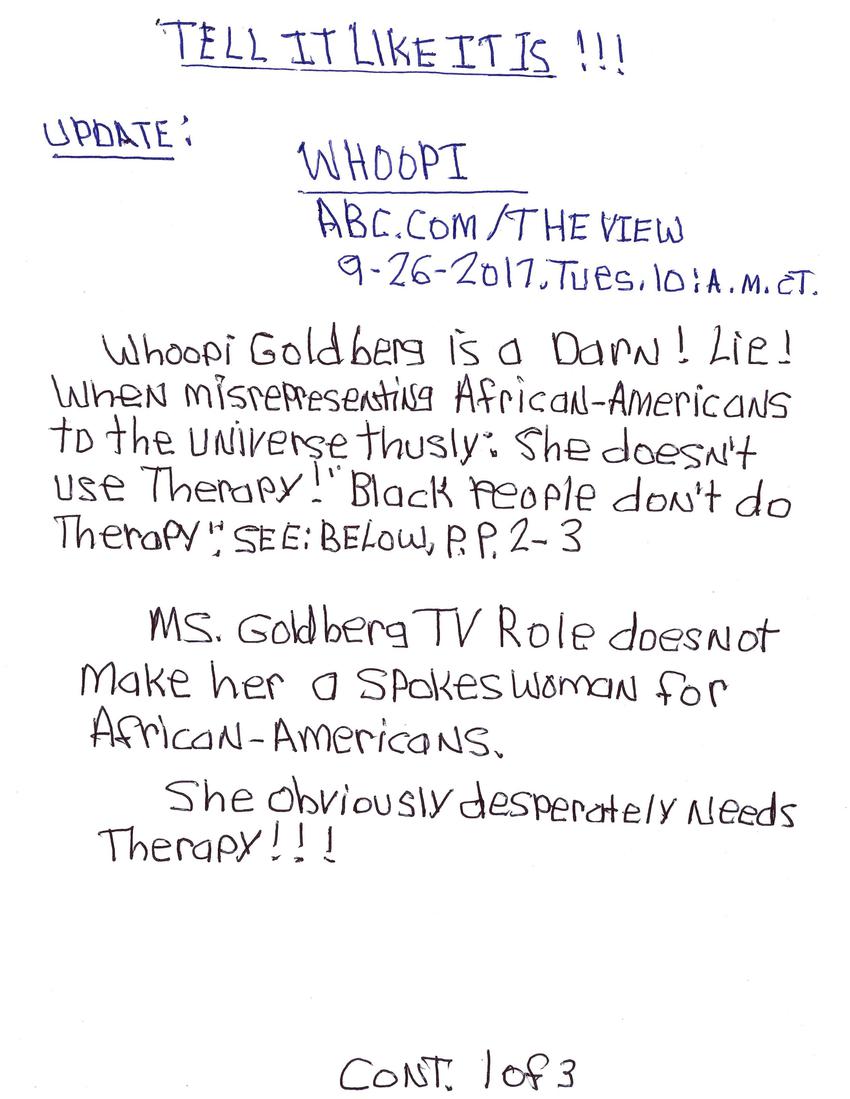 "TELL IT LIKE IT IS !!!
UPDATE:
WHOOPI
ABC.COM/THE VIEW
9-26-2017. Tues. 10:A.M. CT.
Whoopi Goldberg is a Darn! Lie!
When misrepresenting African-Americans
to the universe thusly: She doesn't
use Therapy!" Black People don't do
Therapy": SEE: BELOW, P.P. 2-3
MS. Goldberg TV Role does Not
Make her a Spokes Woman for
African-Americans.
She obviously desperately Needs
Therapy!!!
CONT. 1 of 3